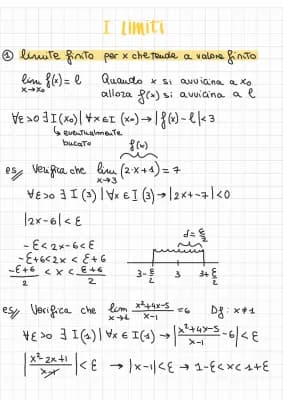 I LIMITI
① limite finito per x che tende a valore finito
lim f(x) = l Quando x si avvicina a x₀
x→x₀ allora f(x) si avvicina a l
∀ε>0 ∃ I(x₀) | ∀x∈I (x₀) → |f(x) - l| < 3
↳ eventualmente
bucato
f(x)
es/ Verifica che lim (2·x+1) = 7
x→3
∀ε>0 ∃ I(3) | ∀x∈ I(3) → |2x+-7|<0
|2x-6| < ε
-ε < 2x-6 < ε
-ε+6 < 2x < ε+6
(-ε+6)/2 < x < (ε+6)/2
d = ε/2
3-ε/2 3 3+ε/2
es/ Verifica che lim (x²+4x-5)/(x-1) = 6 Df: x≠1
x→1
∀ε>0 ∃ I(1) | ∀x∈ I(1) → |(x²+4x-5)/(x-1) - 6| < ε
|(x²-2x+1)/(x-1)| < ε → |x-1| < ε → 1-ε < x < 1+ε